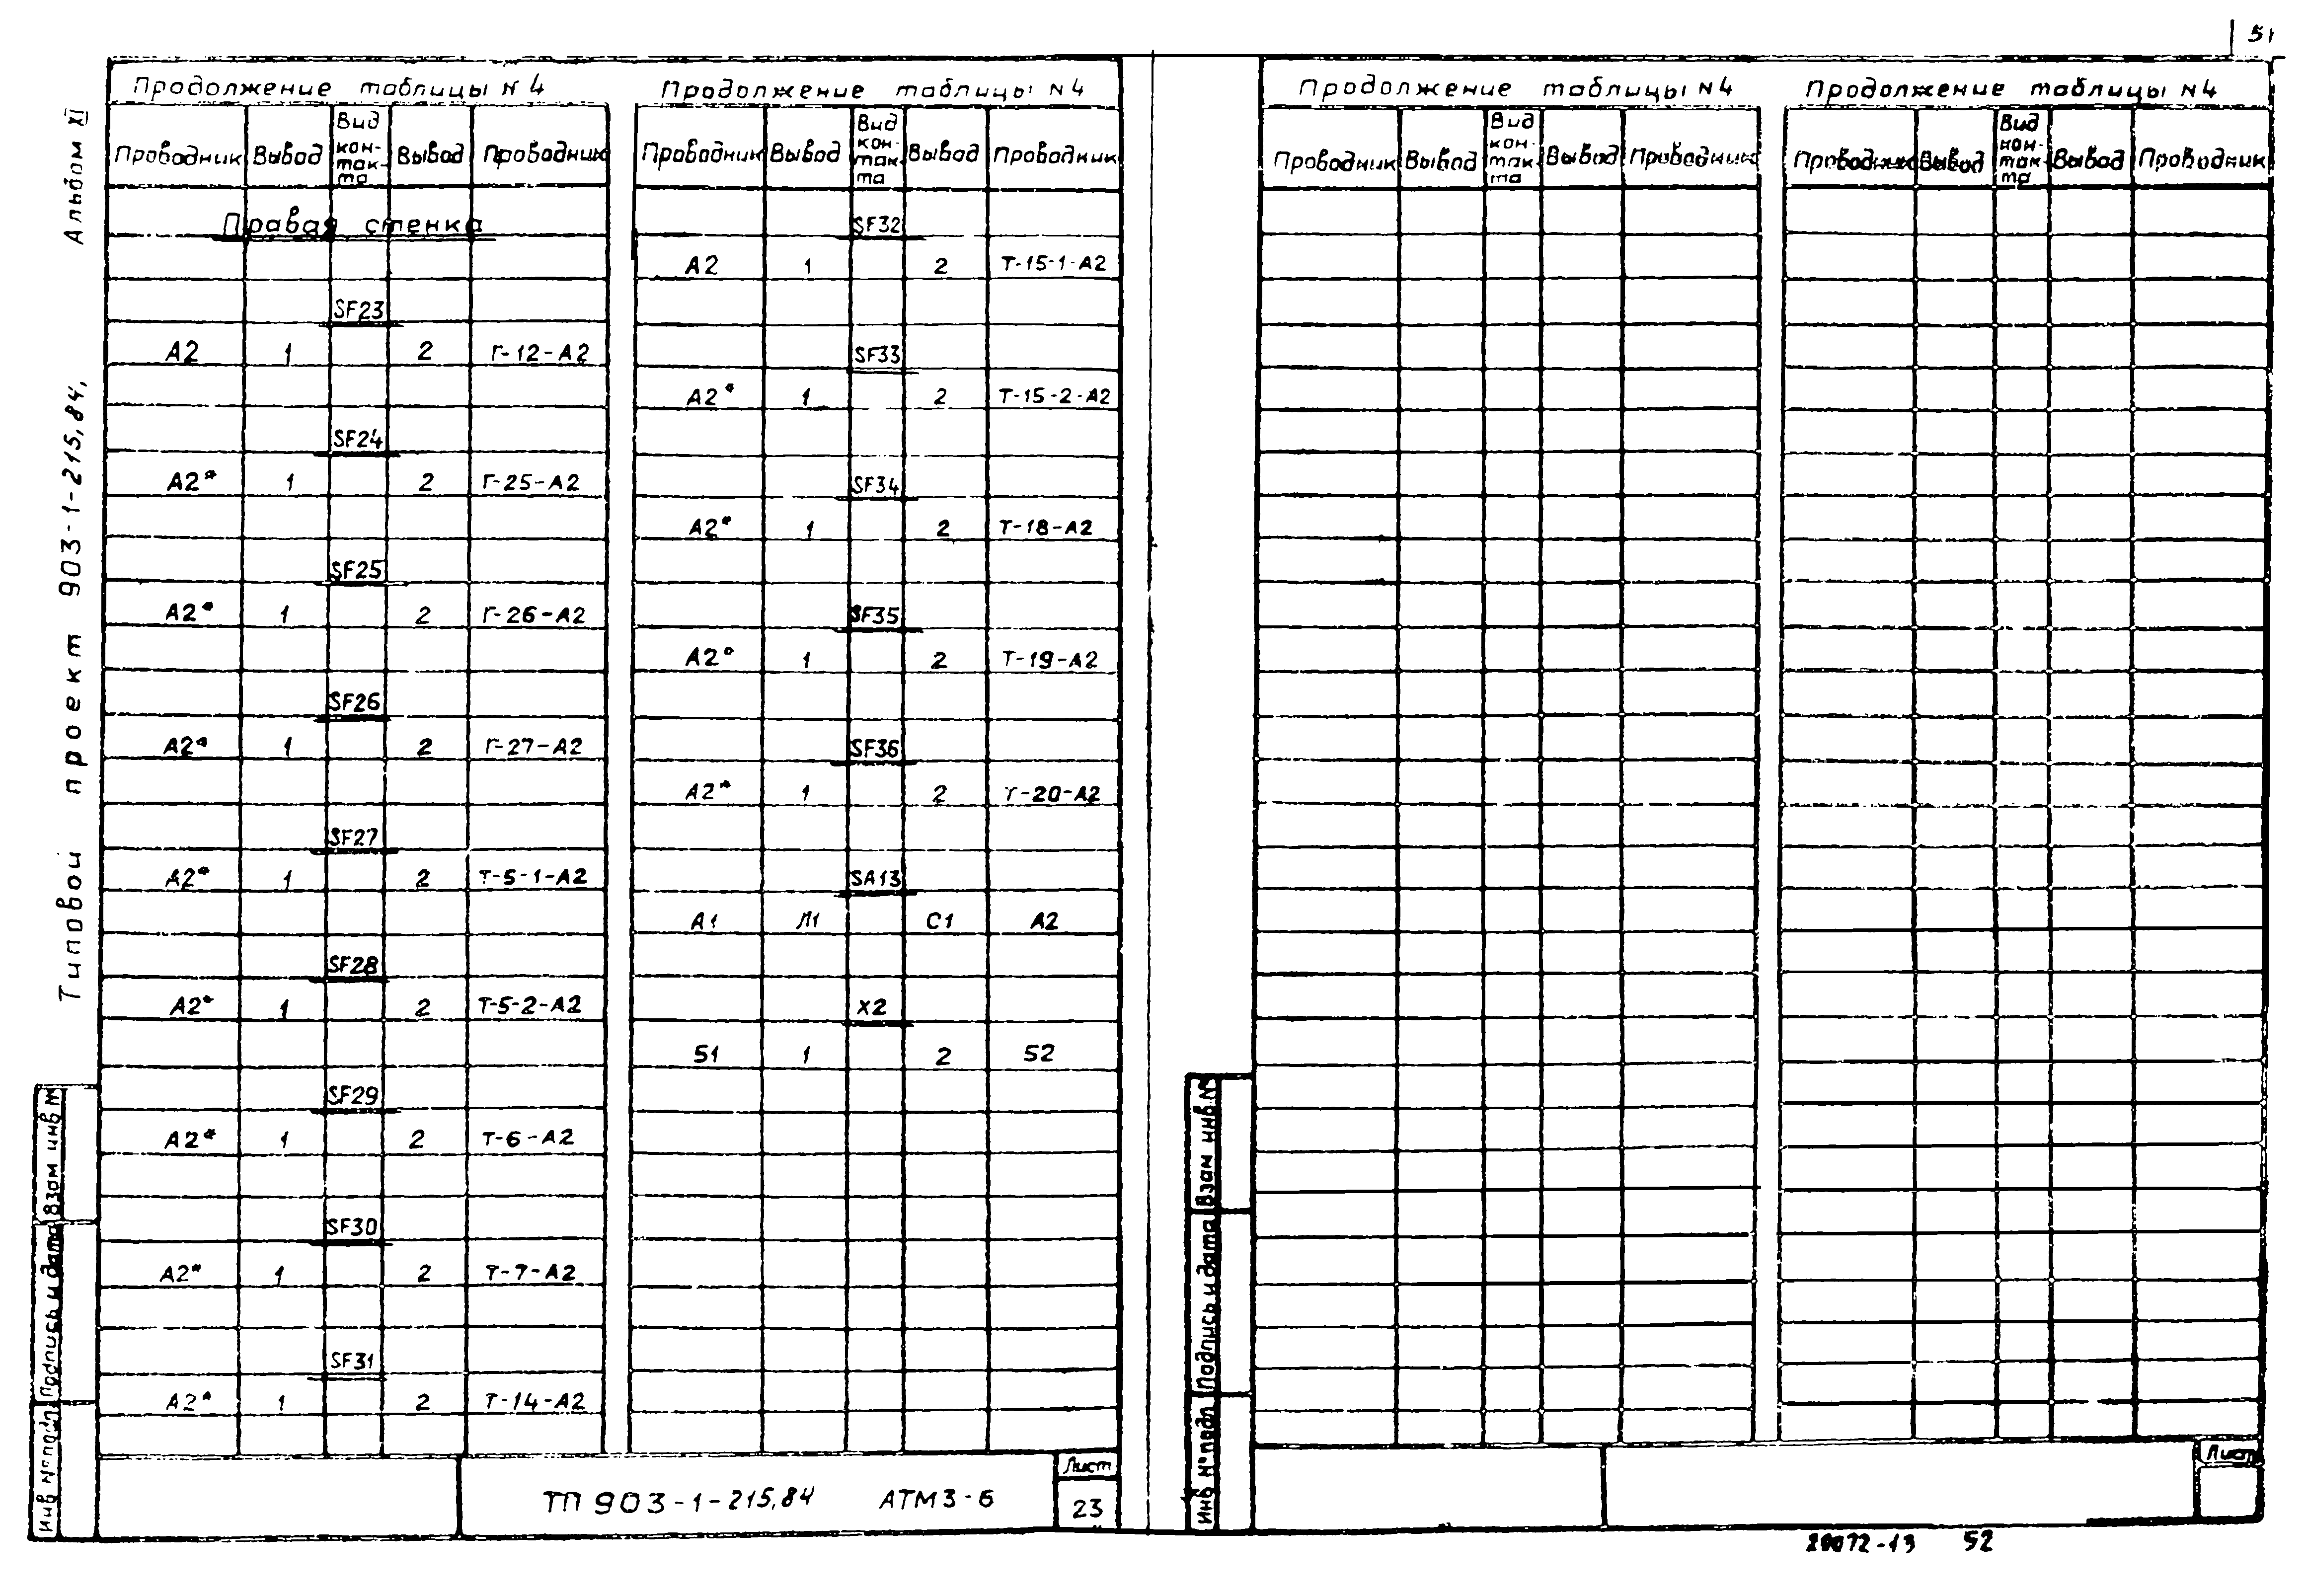 51
Альбом XI
Типовой проект 903-1-215.84.
Продолжение таблицы N 4
Проводник Вывод Вид кон-так-та Вывод Проводник
Правая стенка
SF23
А2 1 2 Г-12-А2
SF24
А2* 1 2 Г-25-А2
SF25
А2* 1 2 Г-26-А2
SF26
А2* 1 2 Г-27-А2
SF27
А2* 1 2 Т-5-1-А2
SF28
А2* 1 2 Т-5-2-А2
SF29
А2* 1 2 Т-6-А2
SF30
А2* 1 2 Т-7-А2
SF31
А2* 1 2 Т-14-А2
Продолжение таблицы N4
Проводник Вывод Вид кон-так-та Вывод Проводник
SF32
А2 1 2 Т-15-1-А2
SF33
А2* 1 2 Т-15-2-А2
SF34
А2* 1 2 Т-18-А2
SF35
А2* 1 2 Т-19-А2
SF36
А2* 1 2 Т-20-А2
SA13
А1 Л1 С1 А2
X2
51 1 2 52
Взам инв №
Подпись и дата
Инв № подл
ТП 903-1-215.84 АТМ3-6
Лист
23
Продолжение таблицы N4
Проводник Вывод Вид кон-так-та Вывод Проводник
Продолжение таблицы N4
Проводник Вывод Вид кон-так-та Вывод Проводник
Взам инв №
Подпись и дата
Инв № подл
Лист
20072-13 52